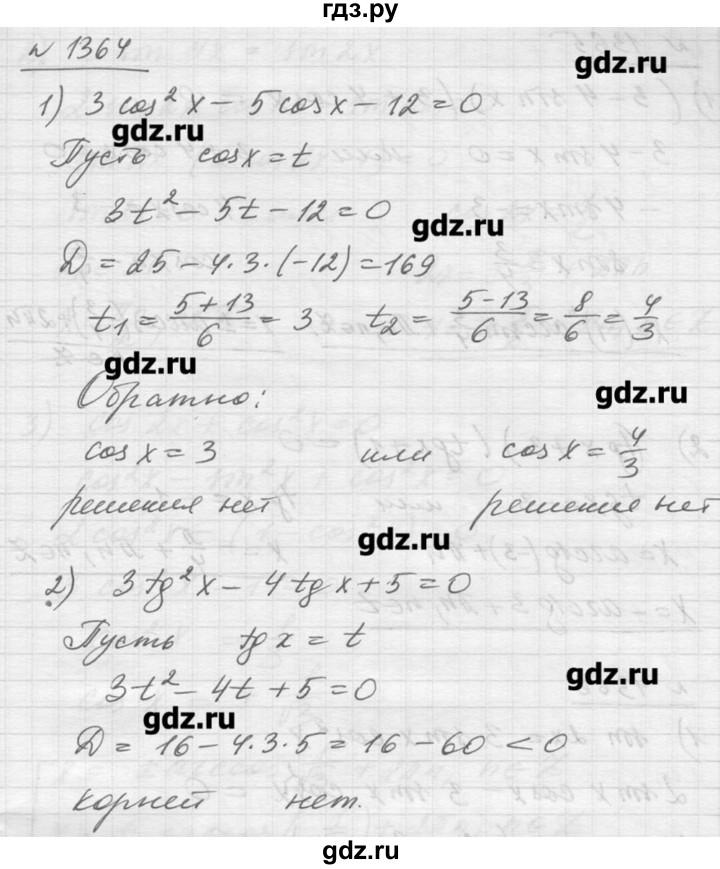 гдз.ру
№ 1364
gdz.ru
1) 3 cos² x - 5 cos x - 12 = 0
gdz.ru
Пусть cos x = t
3t² - 5t - 12 = 0
gdz.ru
D = 25 - 4·3·(-12) = 169
t₁ = (5+13)/6 = 3 t₂ = (5-13)/6 = 8/6 = 4/3
gdz.ru
gdz.ru
Обратно:
cos x = 3 или cos x = 4/3
решения нет решения нет
gdz.ru
2) 3 tg² x - 4 tg x + 5 = 0
Пусть tg x = t
gdz.ru
3t² - 4t + 5 = 0
gdz.ru
D = 16 - 4·3·5 = 16 - 60 < 0
корней нет.
gdz.ru